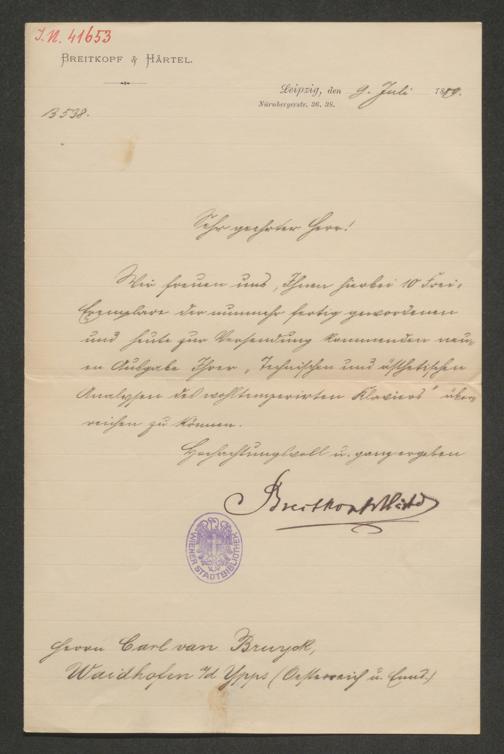 J.N. 41653
BREITKOPF & HÄRTEL.
Leipzig, den 9. Juli 1889.
Nürnbergerstr. 36, 38.
B 538.
Sehr geehrter Herr!
Wir freuen uns, Ihnen hierbei 10 Frei-
Exemplare der nunmehr fertig gewordenen
und heute zur Versendung kommenden neu-
en Ausgabe Ihrer „Technischen und ästhetischen
Analysen des wohltemperirten Klaviers" über-
reichen zu können.
Hochachtungsvoll u. ganz ergeben
Breitkopf & Härtel
WIENER STADTBIBLIOTHEK
Herrn Carl van Bruyck,
Waidhofen a/d Ypps (Oesterreich u. Enns)